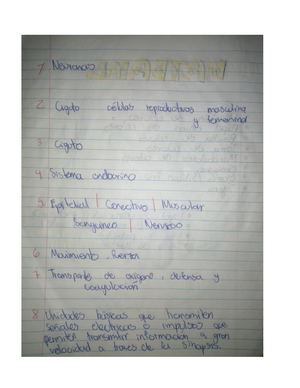 1. Neuronas
2. Cigoto células reproductivas masculina
y femenina
3 Cigoto
4 Sistema endocrino
5 Epitelial | Conectivo | Muscular
Sanguíneo | Nervioso
6 Movimiento, fuerza
7 Transportes de oxígeno, defensa y
coagulación
8 Unidades básicas que transmiten
señales eléctricas o impulsos que
permiten transmitir información a gran
velocidad a través de la sinapsis.